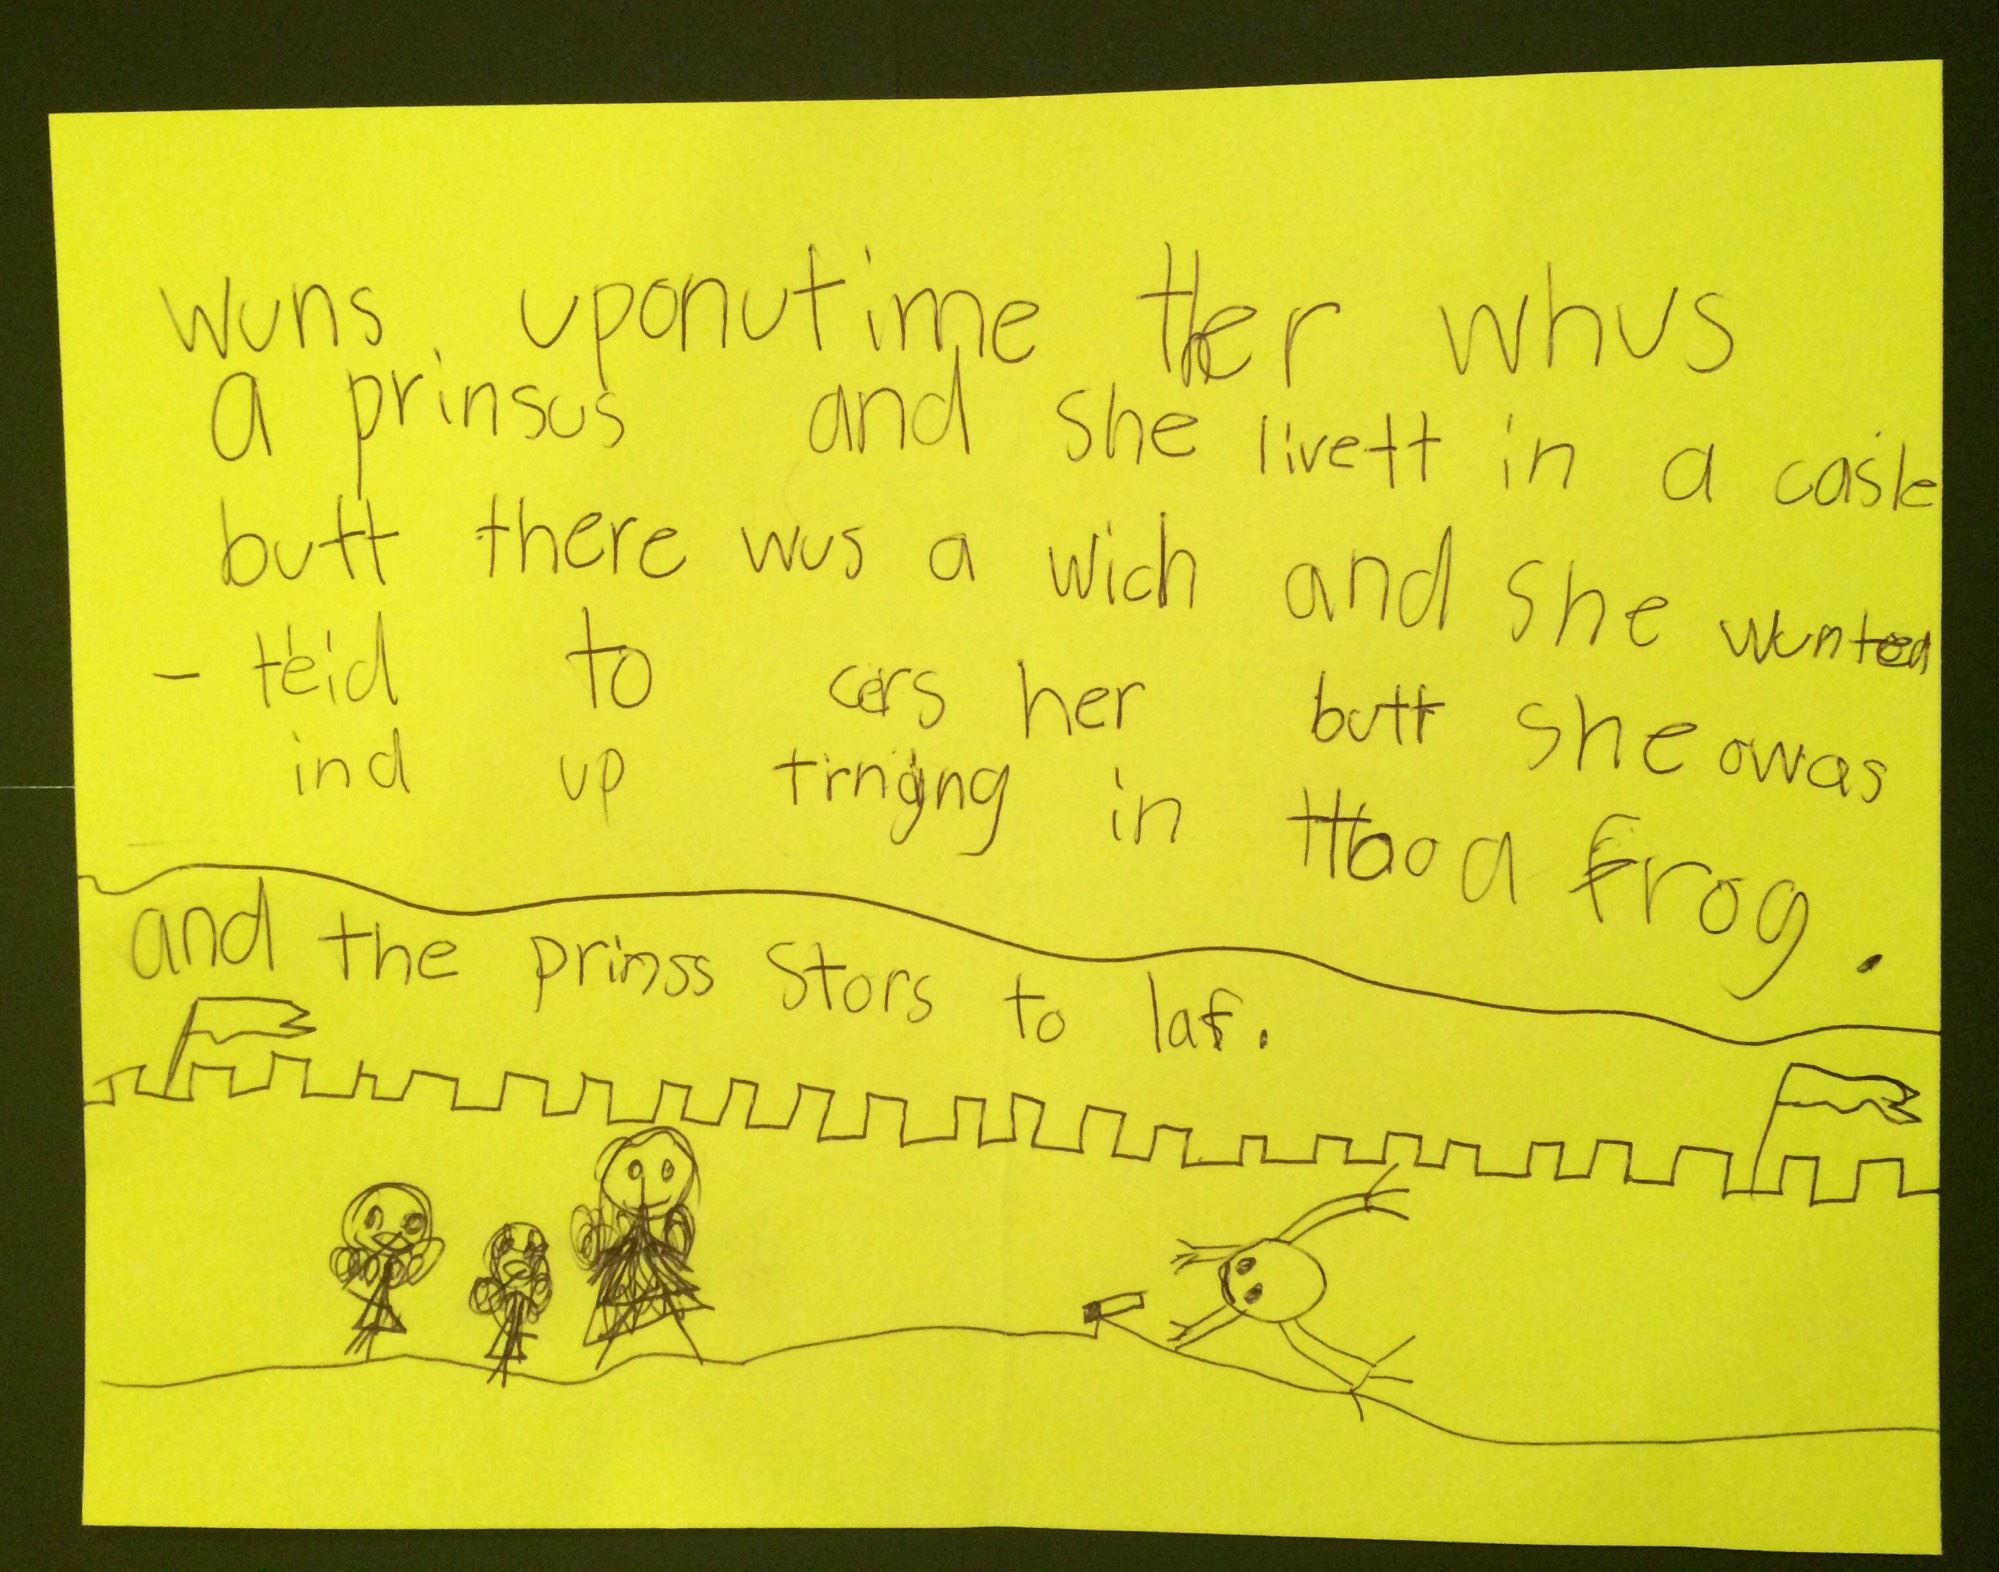 wuns uponutime ther whus
a prinsus and she livett in a casle
butt there wus a wich and she wunted
- teid to cers her butt she owas
ind up trnging in ttoo a frog.
and the prinss stors to laf.